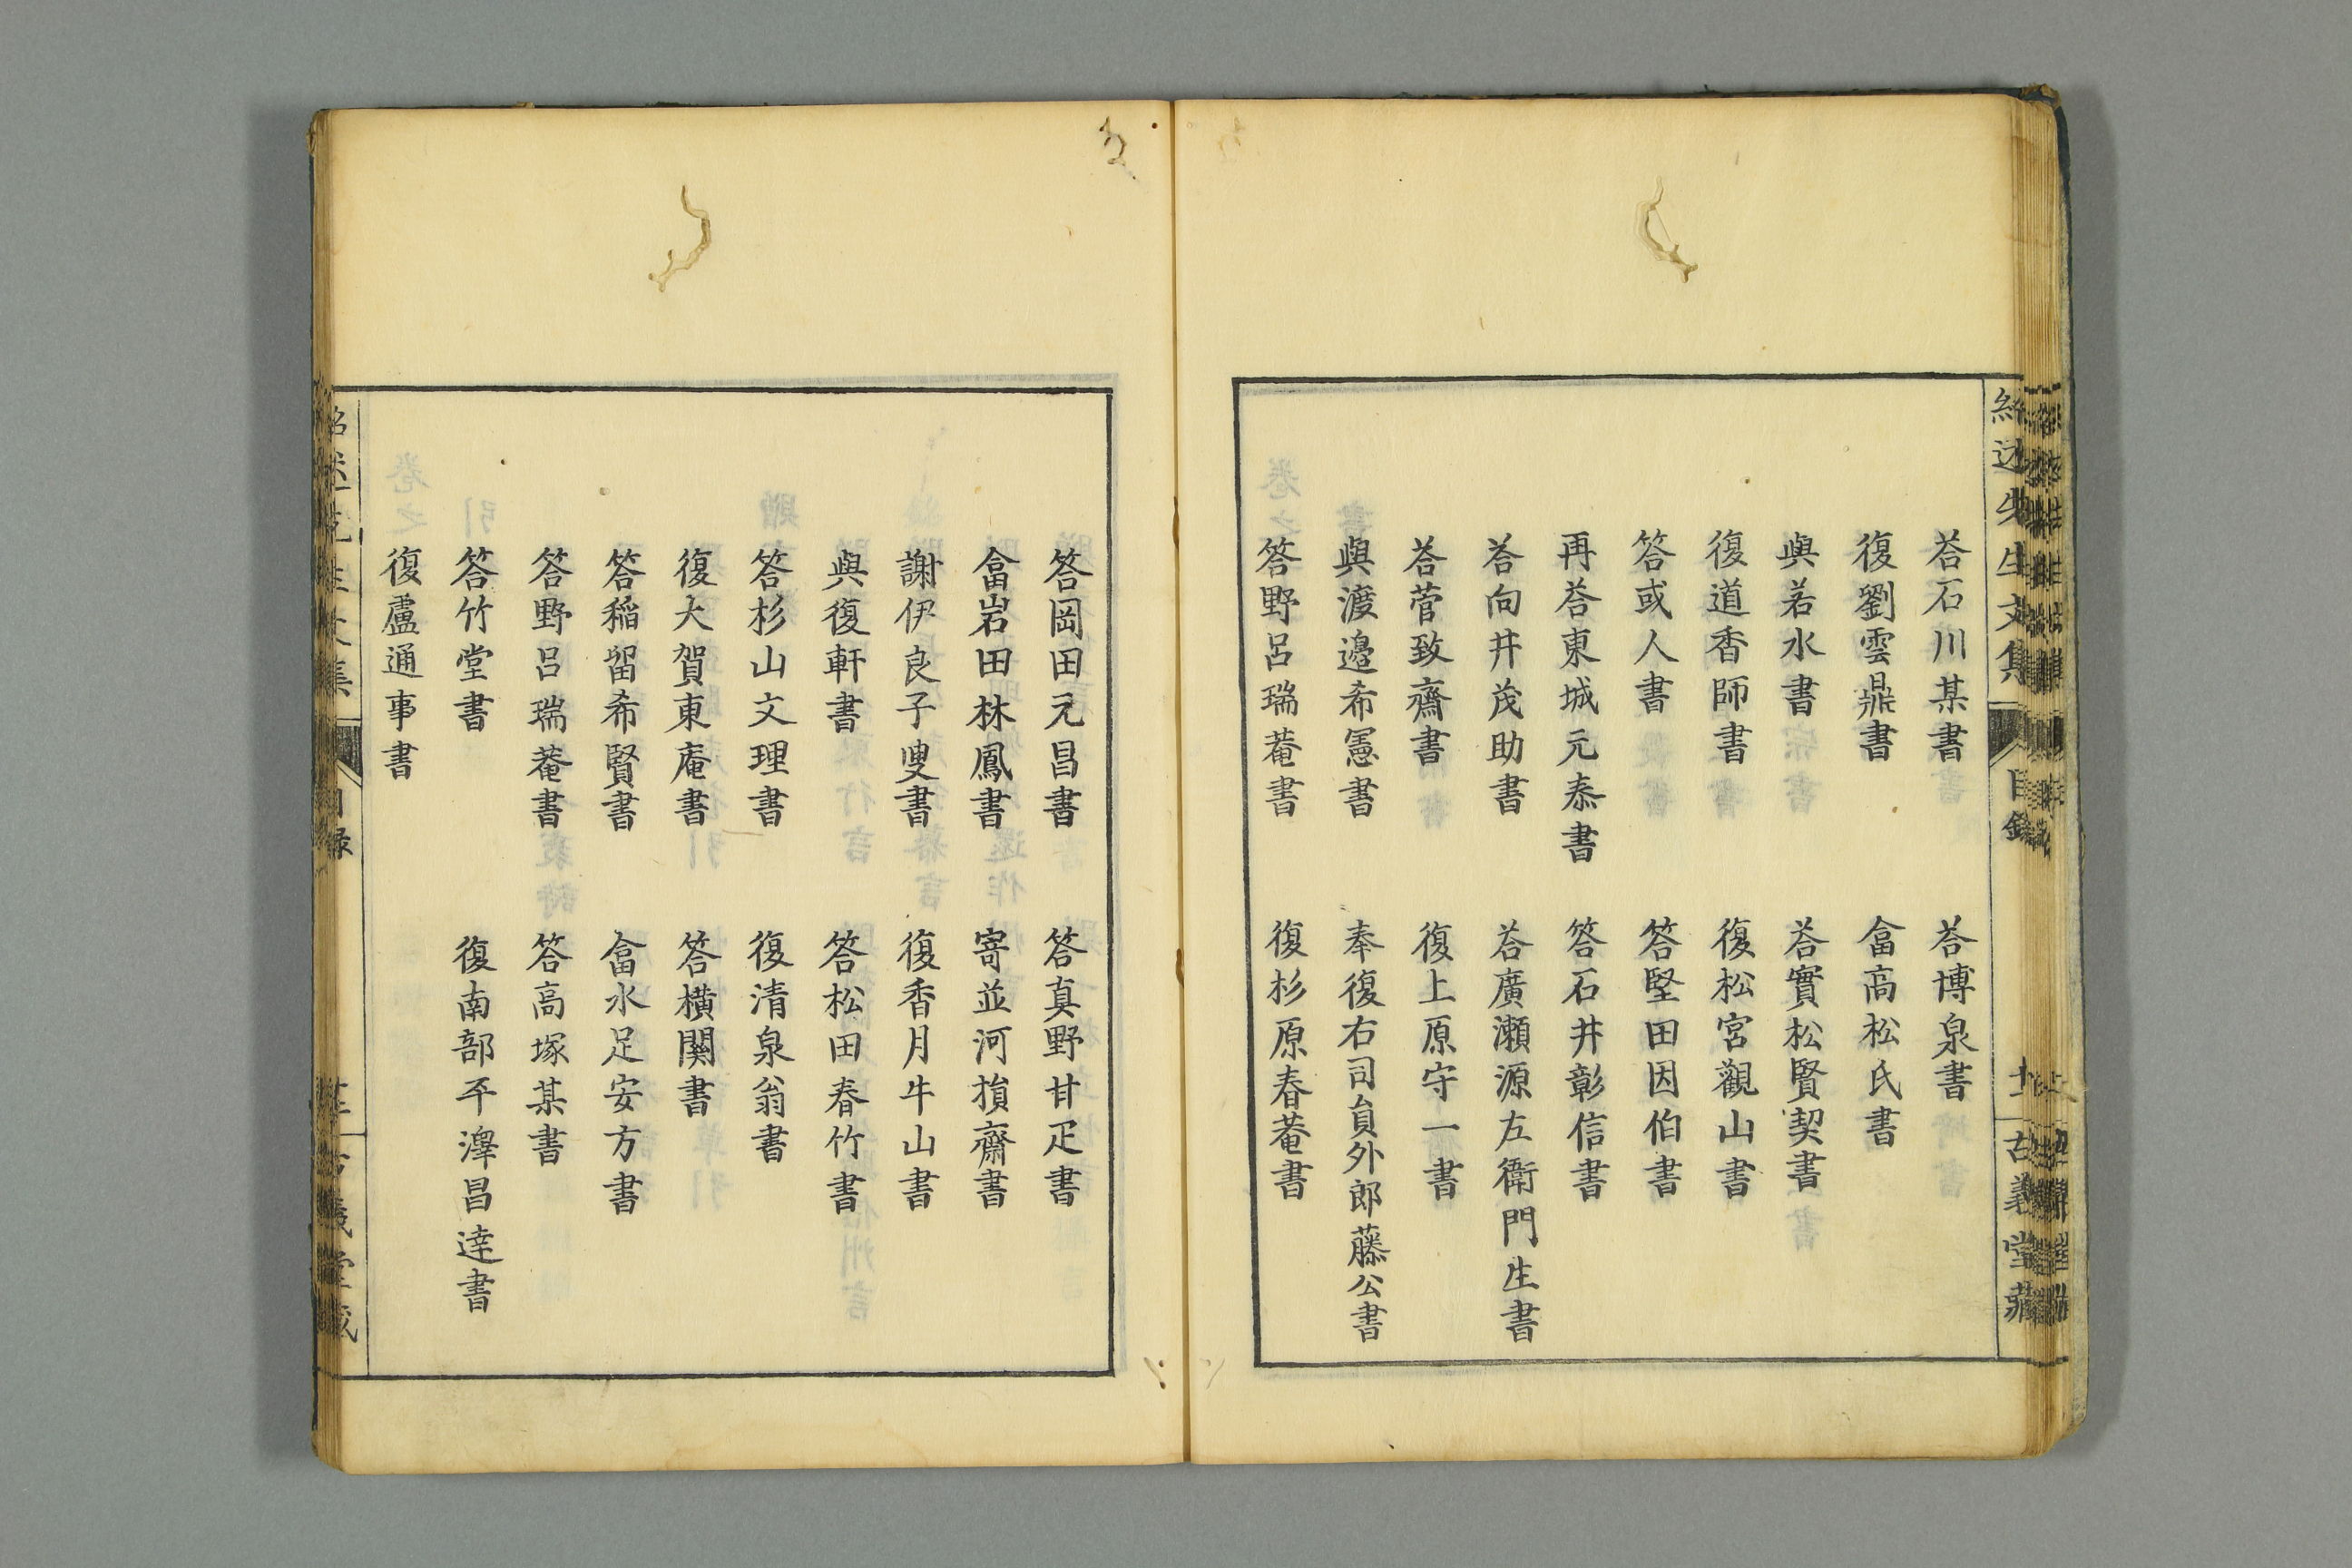 荅石川某書
荅博泉書
復劉雲鼎書
畣高松氏書
與若水書
荅實松賢契書
復道香師書
復松宮觀山書
答或人書
答堅田因伯書
再荅東城元泰書
答石井彰信書
荅向井茂助書
荅廣瀬源左衛門生書
荅菅致齋書
復上原守一書
與渡邉希憲書
奉復右司員外郎藤公書
答野呂瑞菴書
復杉原春菴書
答岡田元昌書
答真野甘疋書
畣岩田林鳳書
寄並河損齋書
謝伊良子叟書
復香月牛山書
與復軒書
答松田春竹書
答杉山文理書
復清泉翁書
復大賀東庵書
答橫關書
答稲留希賢書
畣水足安方書
答野呂瑞菴書
答高塚某書
答竹堂書
復南部平澤昌達書
復盧通事書